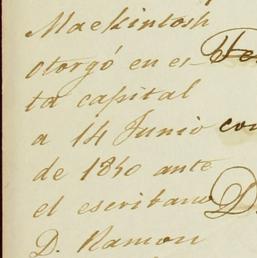 Mackintosh
otorgó en es- Te
ta capital
a 14 Junio con
de 1840 ante
el escribano D.
D. Ramon